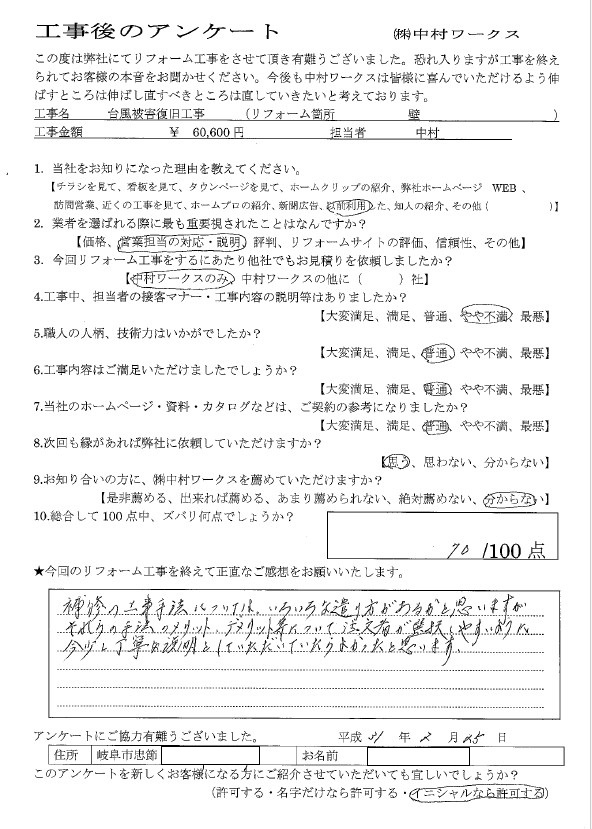 工事後のアンケート　㈱中村ワークス
この度は弊社にてリフォーム工事をさせて頂き有難うございました。恐れ入りますが工事を終え
られてお客様の本音をお聞かせください。今後も中村ワークスは皆様に喜んでいただけるよう伸
ばすところは伸ばし直すべきところは直していきたいと考えております。
工事名　台風被害復旧工事　（リフォーム箇所　壁　）
工事金額　￥ 60,600円　担当者　中村
1. 当社をお知りになった理由を教えてください。
【チラシを見て、看板を見て、タウンページを見て、ホームクリップの紹介、弊社ホームページ　WEB 、
訪問営業、近くの工事を見て、ホームプロの紹介、新聞広告、以前利用した、知人の紹介、その他（　）】
2. 業者を選ばれる際に最も重要視されたことはなんですか？
【価格、営業担当の対応・説明、評判、リフォームサイトの評価、信頼性、その他】
3. 今回リフォーム工事をするにあたり他社でもお見積りを依頼しましたか？
【中村ワークスのみ、中村ワークスの他に（　）社】
4.工事中、担当者の接客マナー・工事内容の説明等はありましたか？
【大変満足、満足、普通、やや不満、最悪】
5.職人の人柄、技術力はいかがでしたか？
【大変満足、満足、普通、やや不満、最悪】
6.工事内容はご満足いただけましたでしょうか？
【大変満足、満足、普通、やや不満、最悪】
7.当社のホームページ・資料・カタログなどは、ご契約の参考になりましたか？
【大変満足、満足、普通、やや不満、最悪】
8.次回も縁があれば弊社に依頼していただけますか？
【思う、思わない、分からない】
9.お知り合いの方に、㈱中村ワークスを薦めていただけますか？
【是非薦める、出来れば薦める、あまり薦められない、絶対薦めない、分からない】
10.総合して100点中、ズバリ何点でしょうか？
70 /100 点
★今回のリフォーム工事を終えて正直なご感想をお願いいたします。
補修の工事手法については、いろいろな遣り方があるかと思いますが
それらの手法のメリット、デメリット等について注文者が選択しやすいように
今少し丁寧な説明をしていただいていたらよかったと思います。
アンケートにご協力有難うございました。　平成 31 年 2 月 25 日
住所　岐阜市忠節　お名前
このアンケートを新しくお客様になる方にご紹介させていただいても宜しいでしょうか？
（許可する・名字だけなら許可する・イニシャルなら許可する）